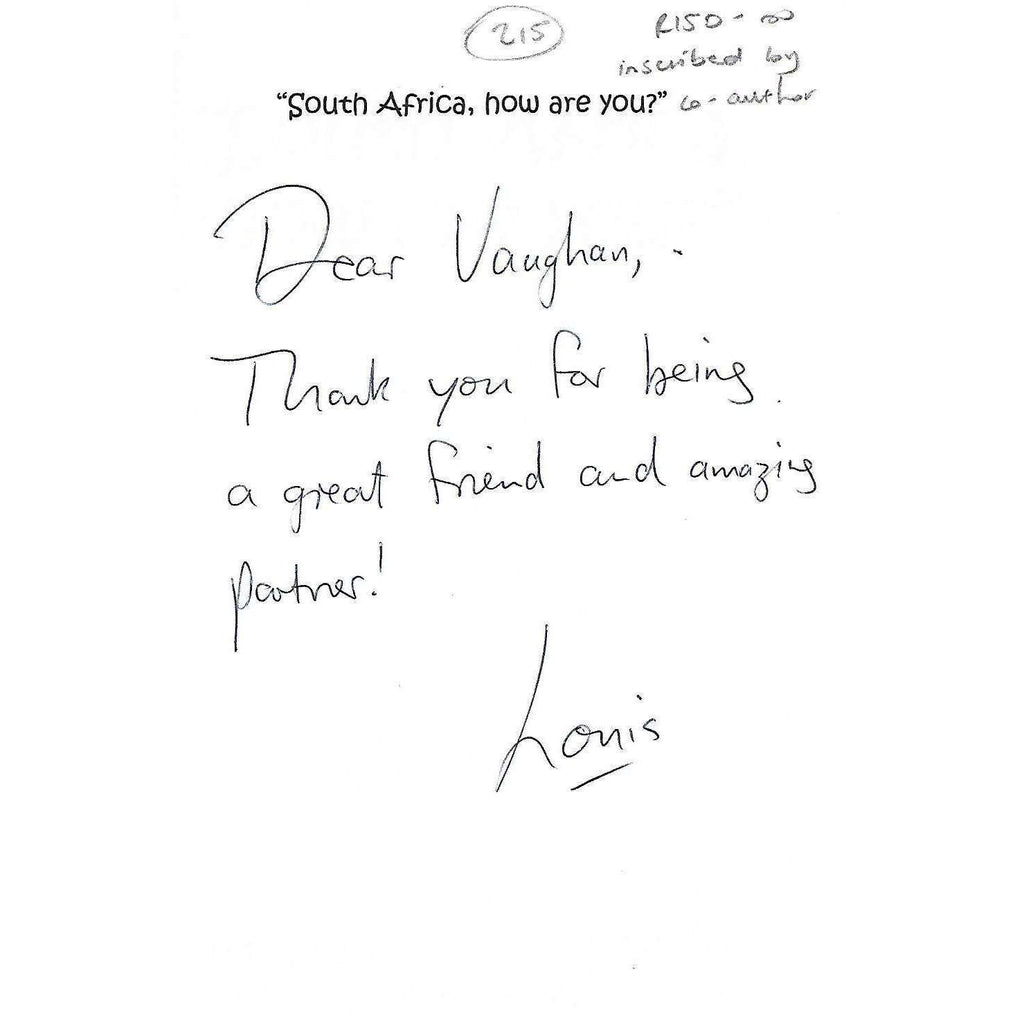 215
R150-00
inscribed by
"South Africa, how are you?" co-author
Dear Vaughan,
Thank you for being
a great friend and amazing
partner!
Louis